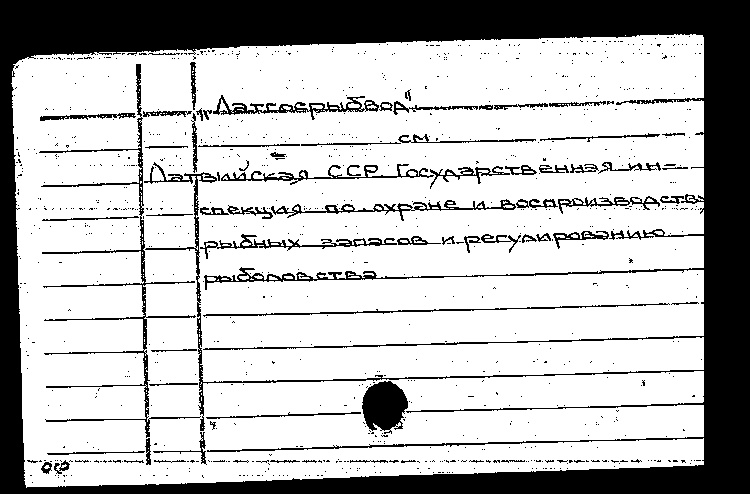 „Латгосрыбвод"
см.
Латвийская ССР Государственная ин-
спекция по охране и воспроизводству
рыбных запасов и регулированию
рыболовства.